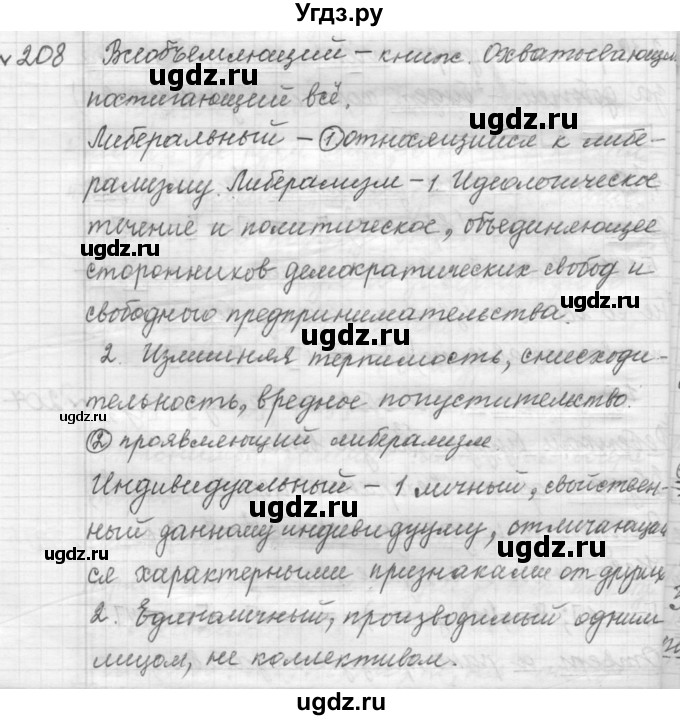 Угдз.ру
№208 Всеобъемлющий – книж. Охватывающий
постигающий всё.
Либеральный – ① относящийся к либе-
рализму. Либерализм – 1 Идеологическое
течение и политическое, объединяющее
сторонников демократических свобод и
свободного предпринимательства.
2. Излишняя терпимость, снисходи-
тельность, вредное попустительство.
② проявляющий либерализм
Индивидуальный – 1 личный, свойствен-
ный данному индивидууму, отличающий
ся характерными признаками от других
2. Единоличный, производимый одним
лицом, не коллективом.
ugdz.ru
ugdz.ru
ugdz.ru
ugdz.ru
ugdz.ru
ugdz.ru
ugdz.ru
ugdz.ru
ugdz.ru
ugdz.ru
ugdz.ru
ugdz.ru
ugdz.ru
ugdz.ru